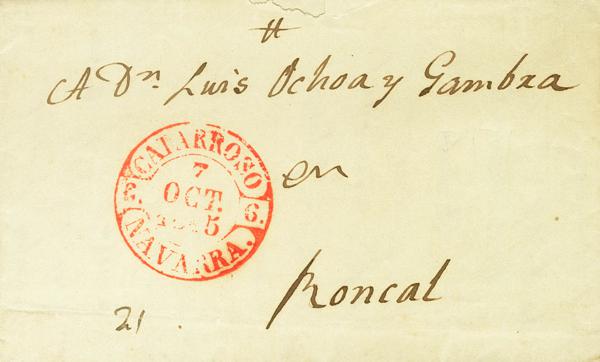 A Dn. Luis Ochoa y Gambra
CAPARROSO
7
OCT.
6.
NAVARRA.
en
Roncal
21.